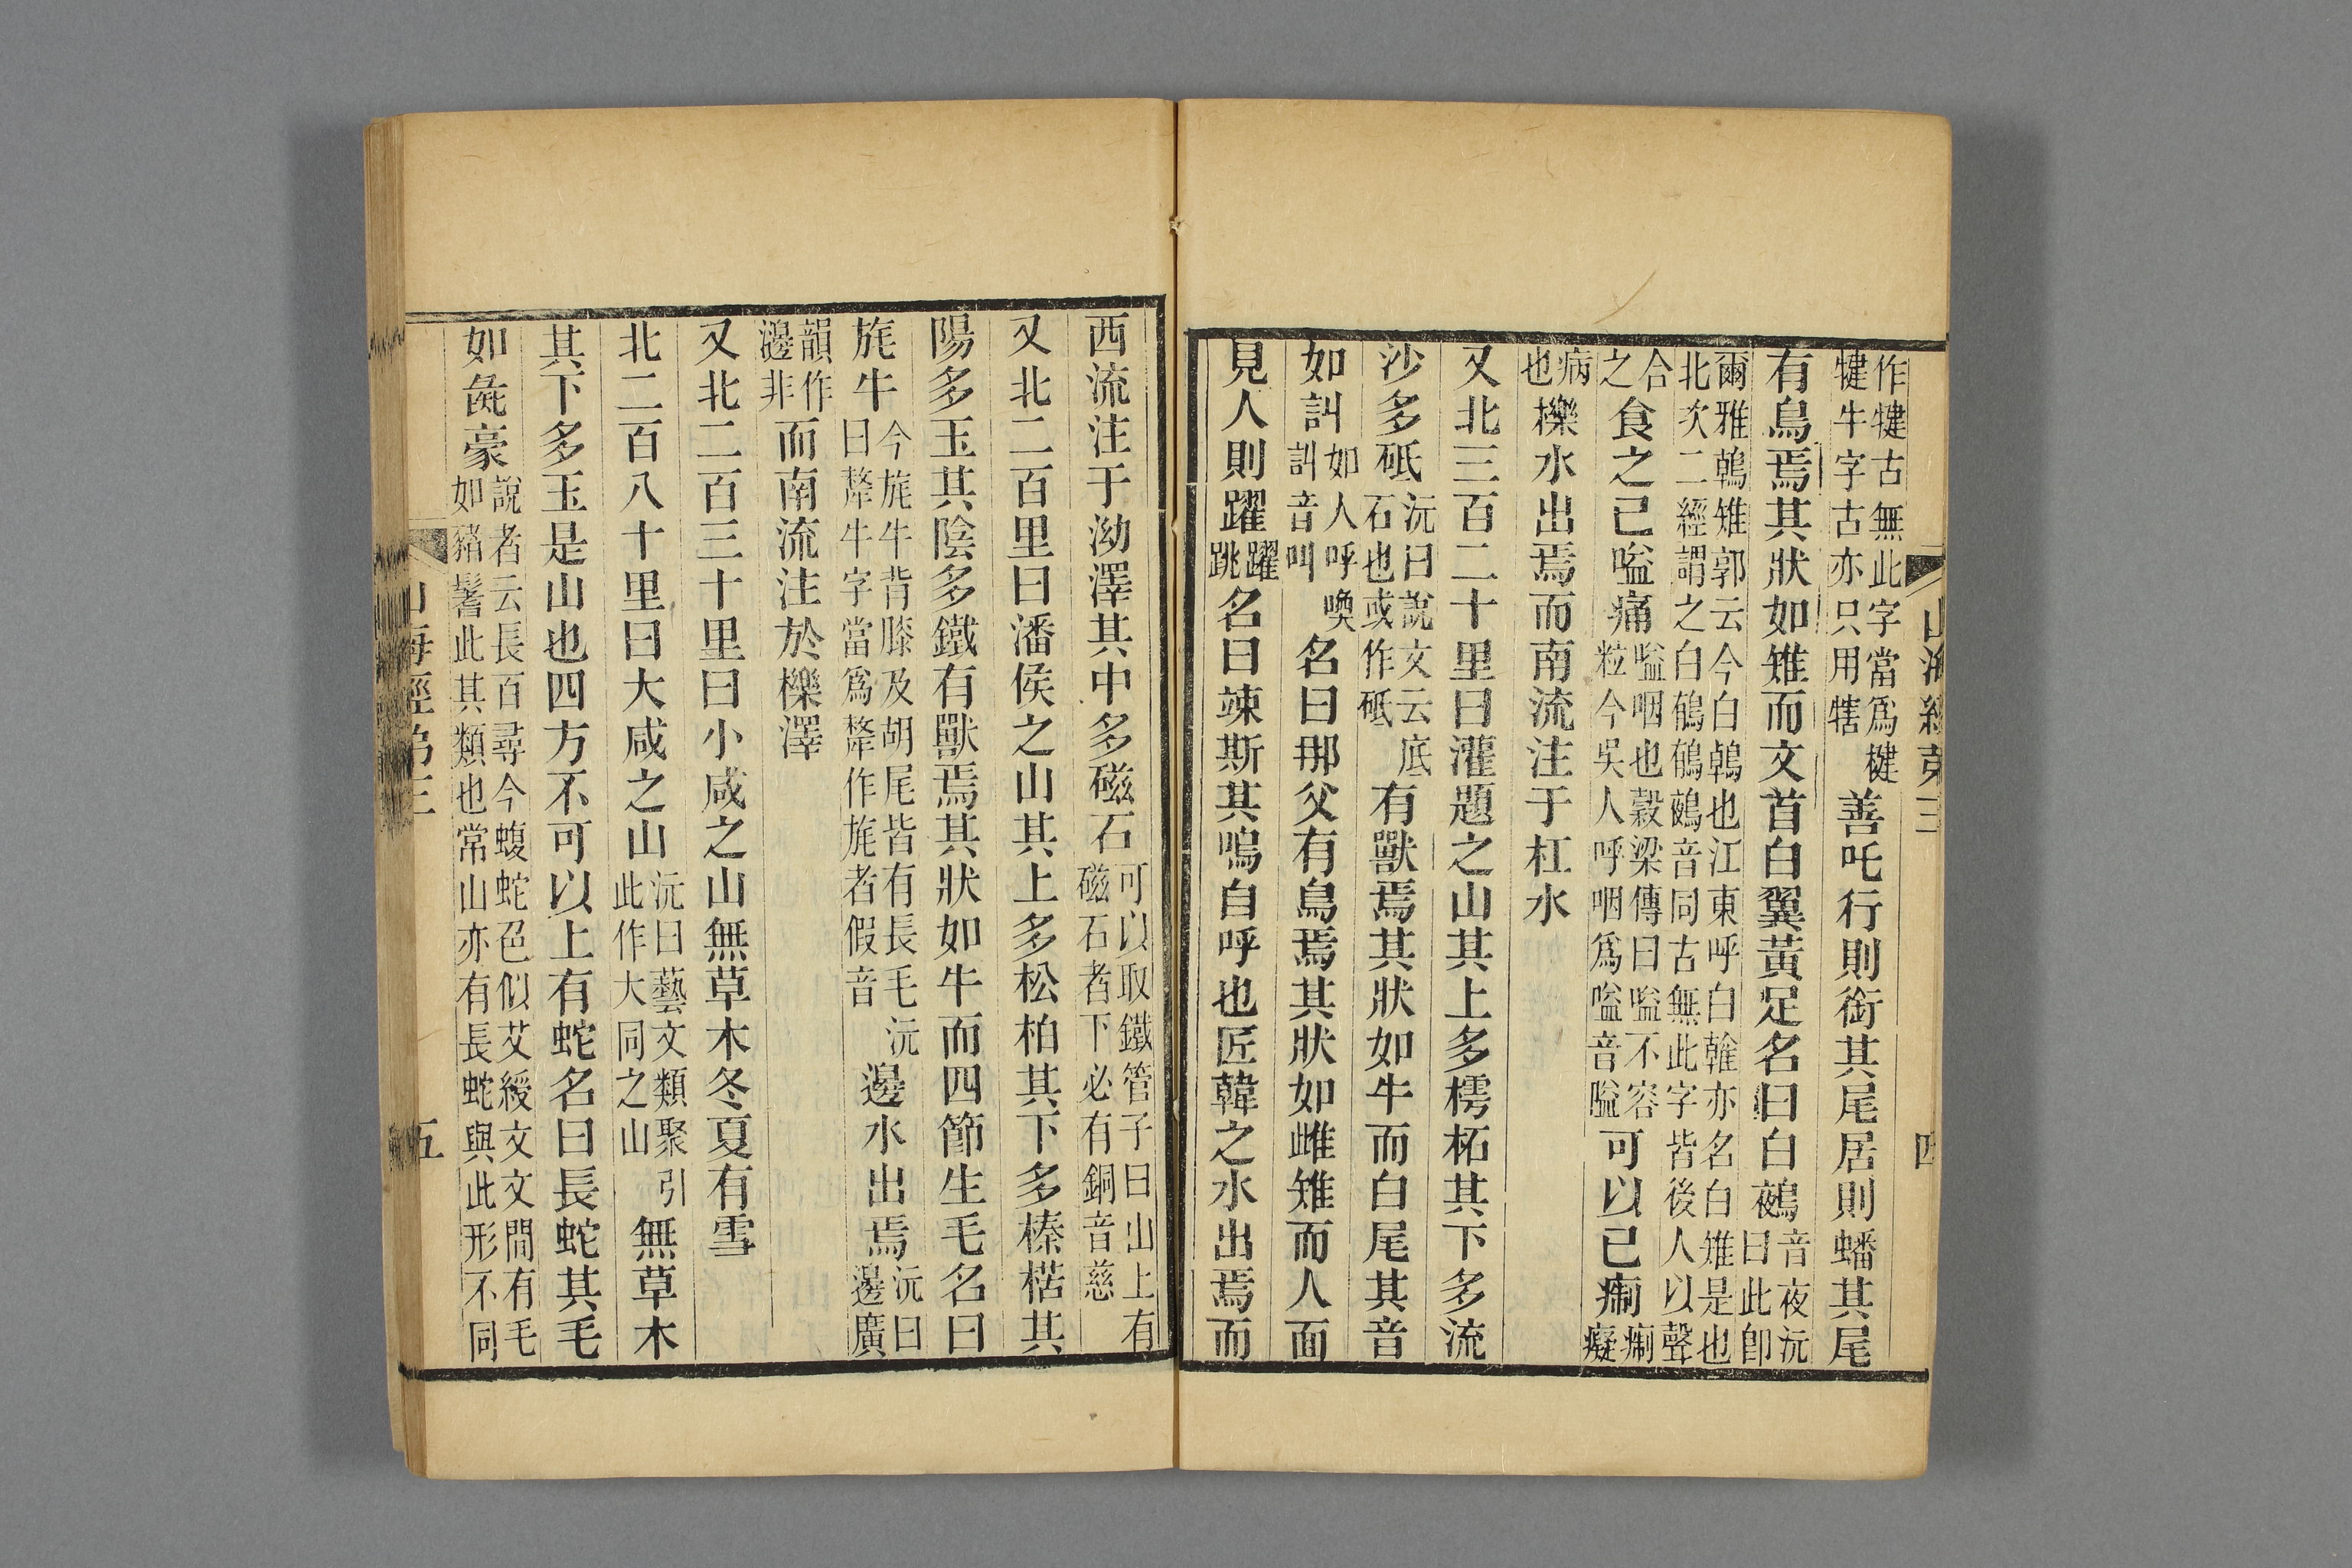 山海經第三 四
作犍古無此字當爲楗犍牛字古亦只用犗善吒行則銜其尾居則蟠其尾
有鳥焉其狀如雉而文首白翼黃足名曰白鵺音夜沅曰此卽
爾雅鶾雉郭云今白鶾也江東呼白雗亦名白雉是也北次二經謂之白鵺鵺鵺音同古無此字皆後人以聲
合之食之已嗌痛嗌咽也穀梁傳曰嗌不容粒今吳人呼咽爲嗌音隘可以已痸痸癡
病也櫟水出焉而南流注于杠水
又北三百二十里曰灌題之山其上多樗柘其下多流
沙多砥沅曰說文云底石也或作砥有獸焉其狀如牛而白尾其音
如訆如人呼喚訆音叫名曰那父有鳥焉其狀如雌雉而人面
見人則躍躍跳名曰竦斯其鳴自呼也匠韓之水出焉而
西流注于泑澤其中多磁石可以取鐵管子曰山上有磁石者下必有銅音慈
又北二百里曰潘侯之山其上多松柏其下多榛楛其
陽多玉其陰多鐵有獸焉其狀如牛而四節生毛名曰
旄牛今旄牛背膝及胡尾皆有長毛沅曰犛牛字當爲犛作旄者假音邊水出焉沅曰邊廣
韻作邊非而南流注於櫟澤
又北二百三十里曰小咸之山無草木冬夏有雪
北二百八十里曰大咸之山沅曰藝文類聚引此作大同之山無草木
其下多玉是山也四方不可以上有蛇名曰長蛇其毛
如彘豪說者云長百尋今蝮蛇色似艾綬文文間有毛如豬鬐此其類也常山亦有長蛇與此形不同
山海經第三 五